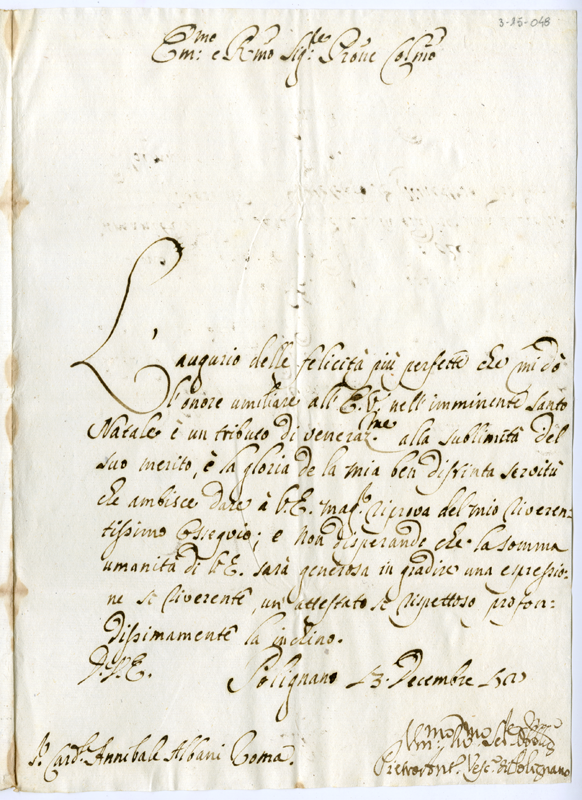 3-15-048
Em:mo e R:mo Sig:re Prōne Colmo
L'augurio delle felicità più perfette che mi dò
l'onore umiliare all' E. V. nell'imminente santo
Natale è un tributo di veneraz.ne alla sublimità del
suo merito, è la gloria de la mia ben distinta servitù
che ambisce dare à V. E. mag.r riprova del mio riveren-
tissimo ossequio; e non disperando che la somma
umanità di V. E. sarà generosa in gradire una espressio-
ne sì riverente, un' attestato sì rispettoso profon-
dissimamente la inchino.
D. V. E. Polignano 13. Decembre
S.r Card.l Annibale Albani Roma.
Vesc.o di Polignano